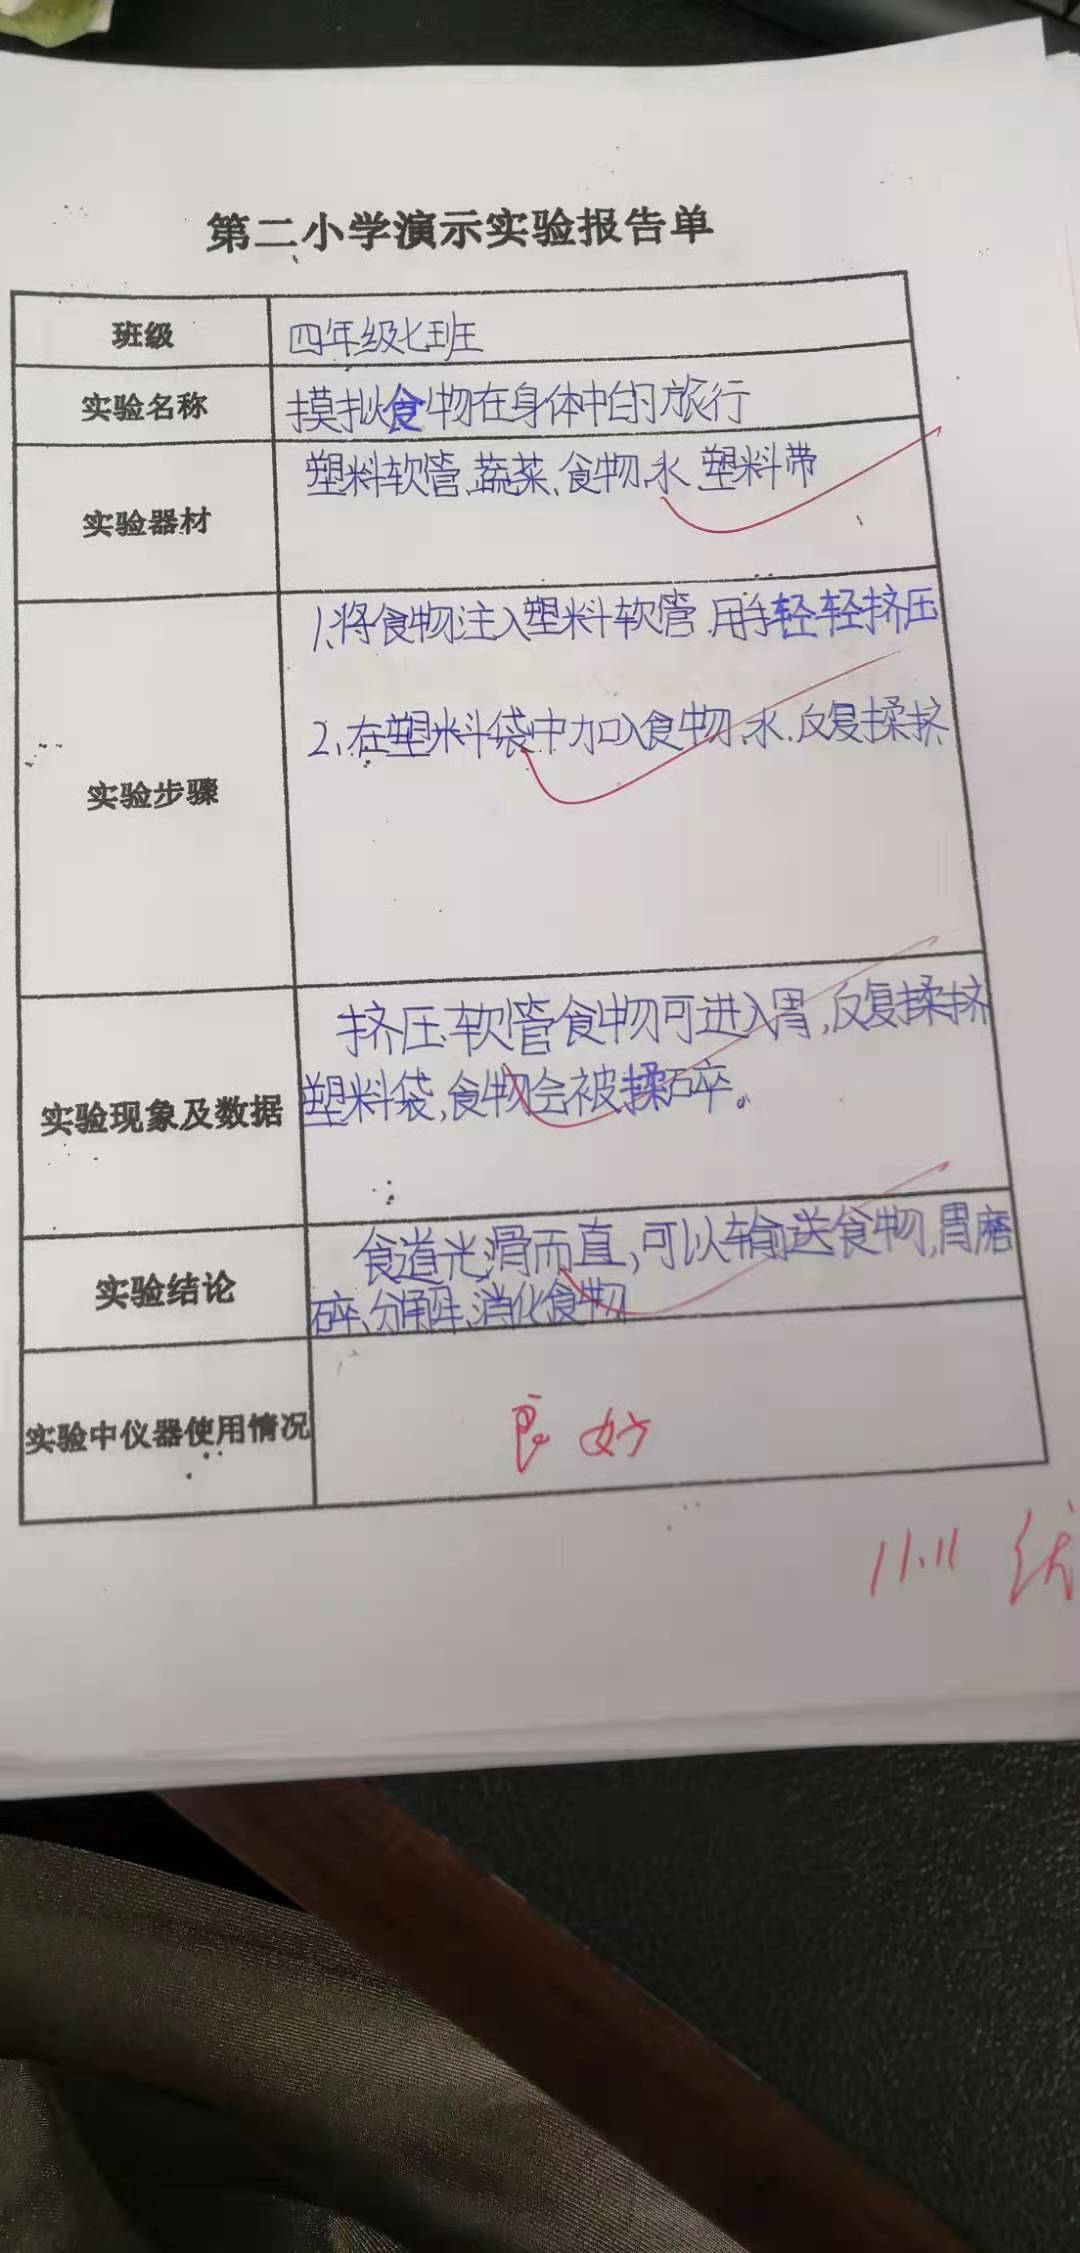 第二小学演示实验报告单
班级 四年级七班
实验名称 摸拟食物在身体中的旅行
实验器材 塑料软管、蔬菜、食物、水、塑料带
1、将食物注入塑料软管、用手轻轻挤压
2、在塑料袋中加入食物、水、反复揉挤
实验步骤
挤压软管食物可进入胃,反复揉挤
实验现象及数据 塑料袋,食物会被揉碎。
食道光滑而直,可以输送食物,胃磨
实验结论 碎、分解、消化食物
实验中仪器使用情况 良好
11.11 优